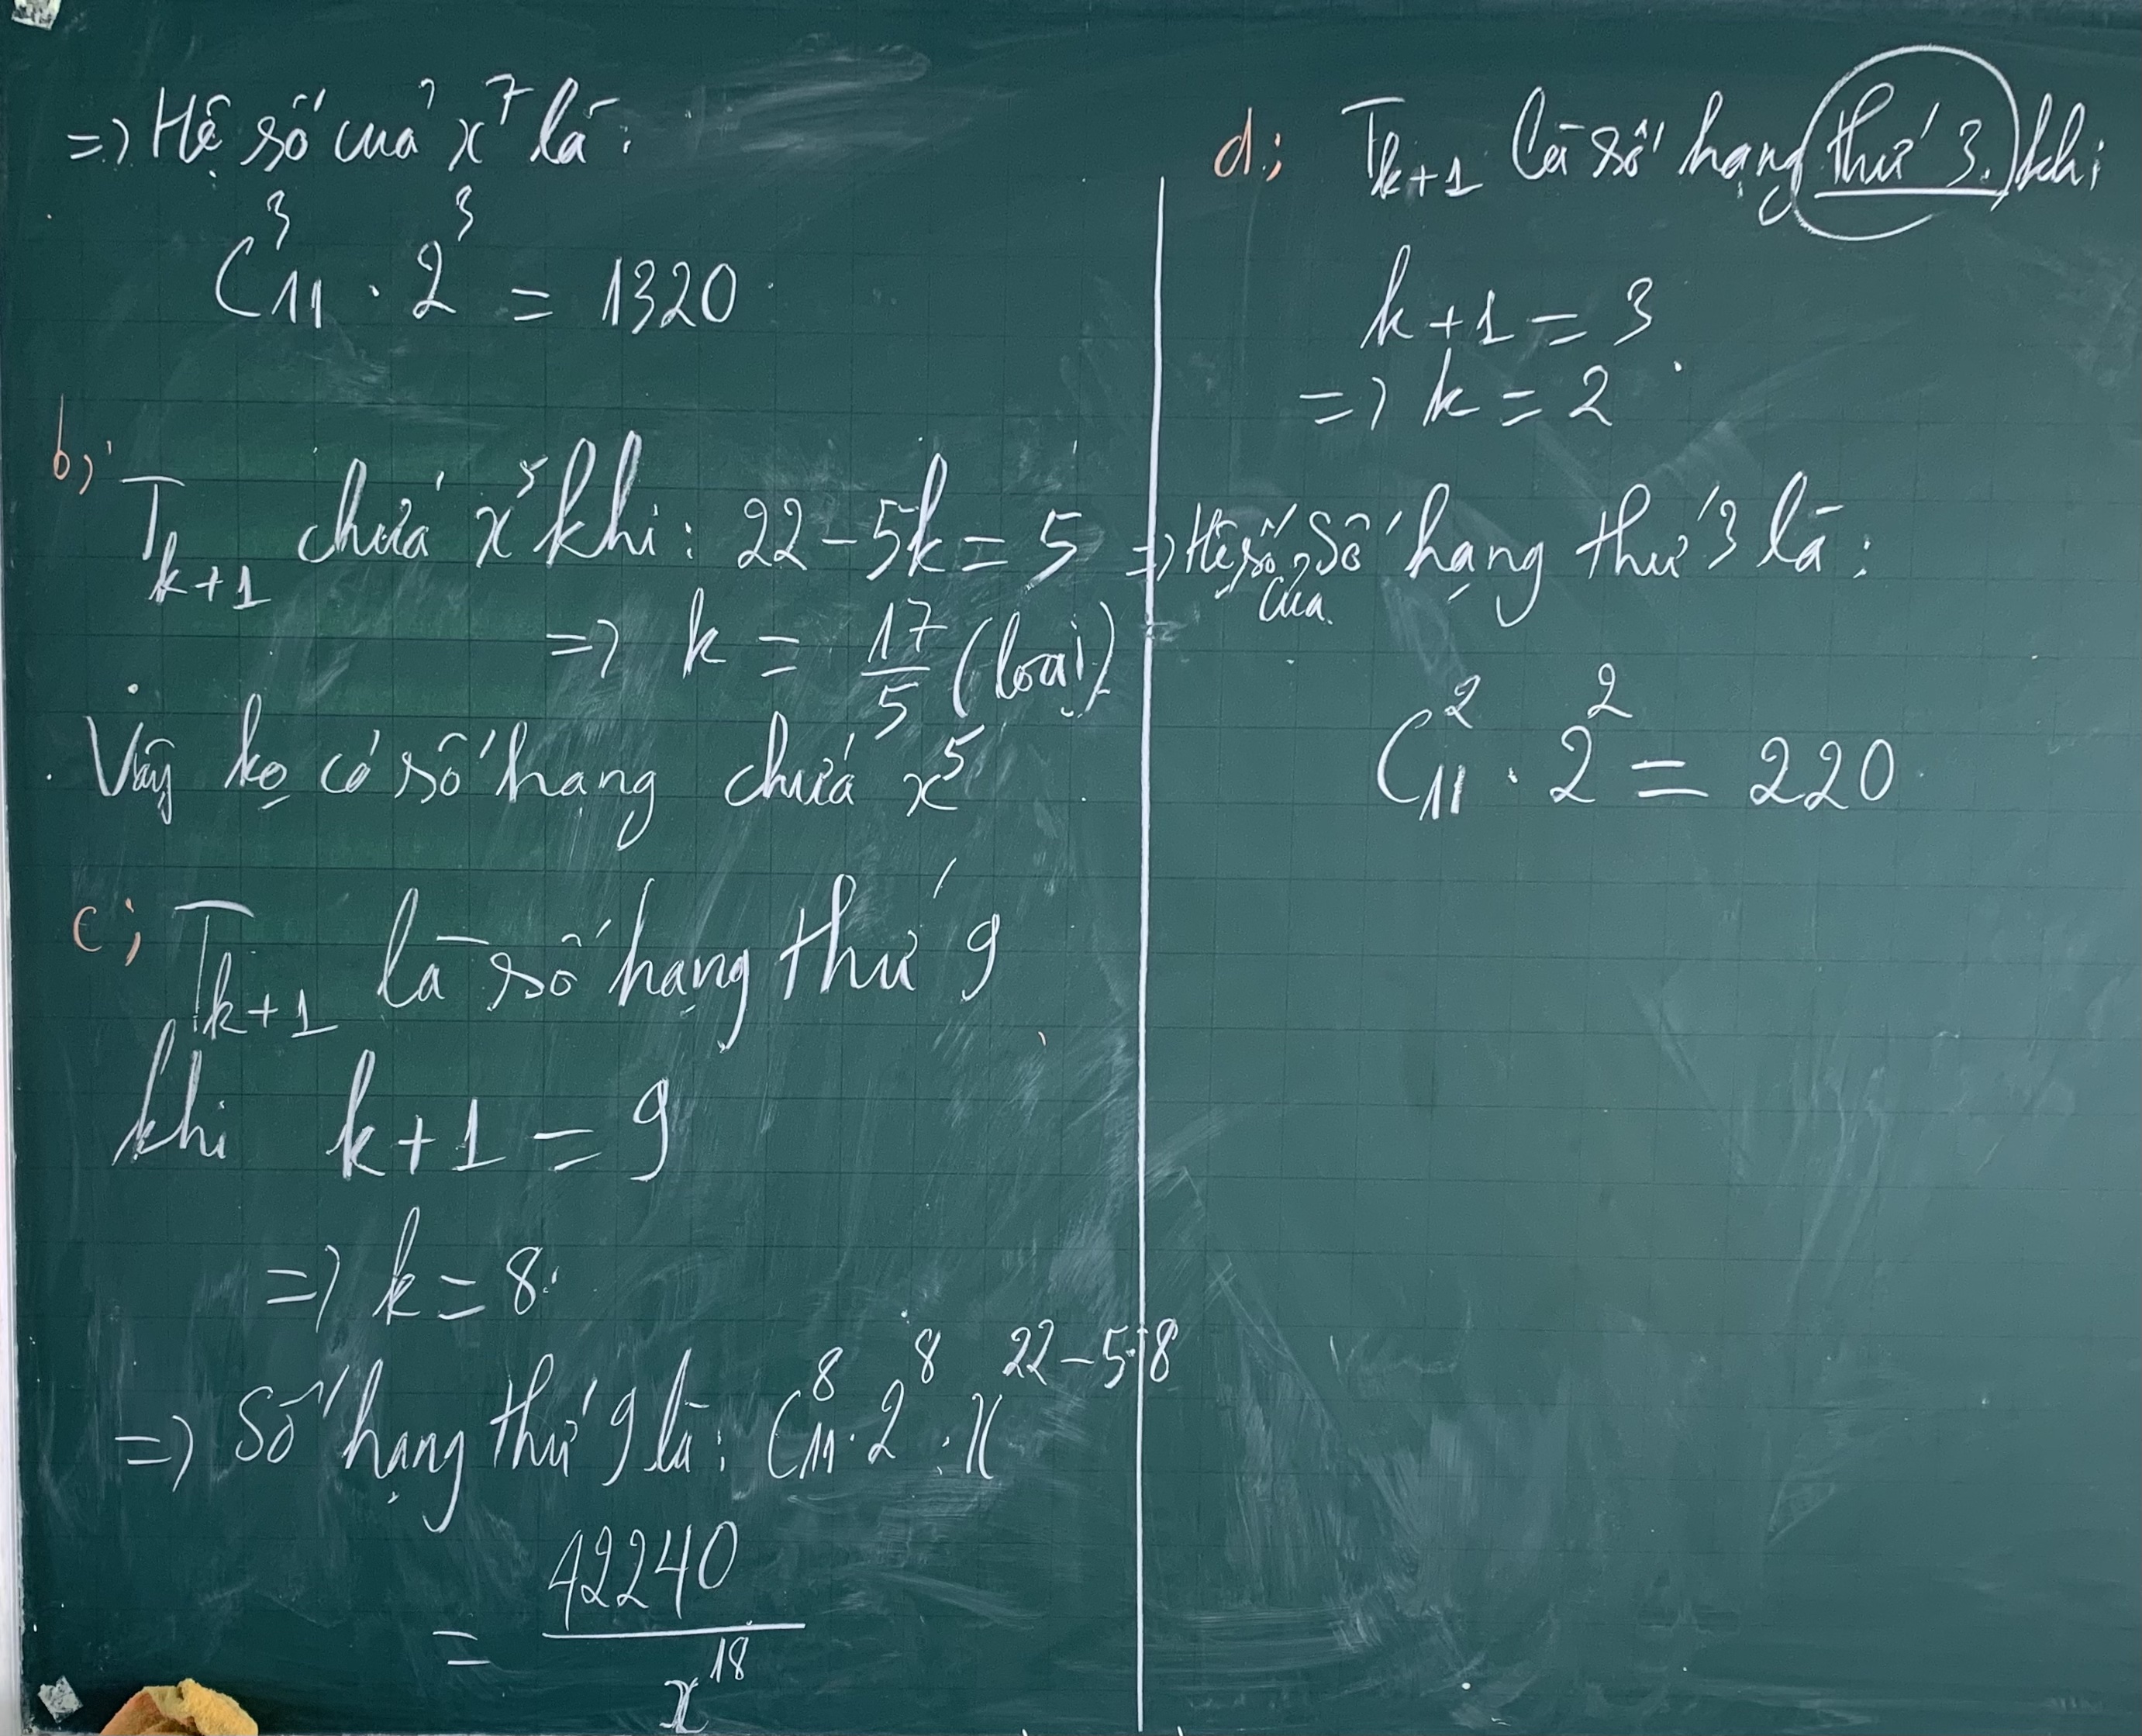 => Hệ số của x⁷ là:
C₁₁³ · 2³ = 1320
b; Tₖ₊₁ chứa x⁵ khi: 22-5k = 5
=> k = 17/5 (loại)
Vậy ko có số hạng chứa x⁵
c; Tₖ₊₁ là số hạng thứ 9
khi k+1 = 9
=> k = 8
=> Số hạng thứ 9 là: C₁₁⁸ · 2⁸ · x²²⁻⁵·⁸
= 42240/x¹⁸
d; Tₖ₊₁ là số hạng thứ 3 khi
k+1 = 3
=> k = 2
=> Hệ số của Số hạng thứ 3 là:
C₁₁² · 2² = 220